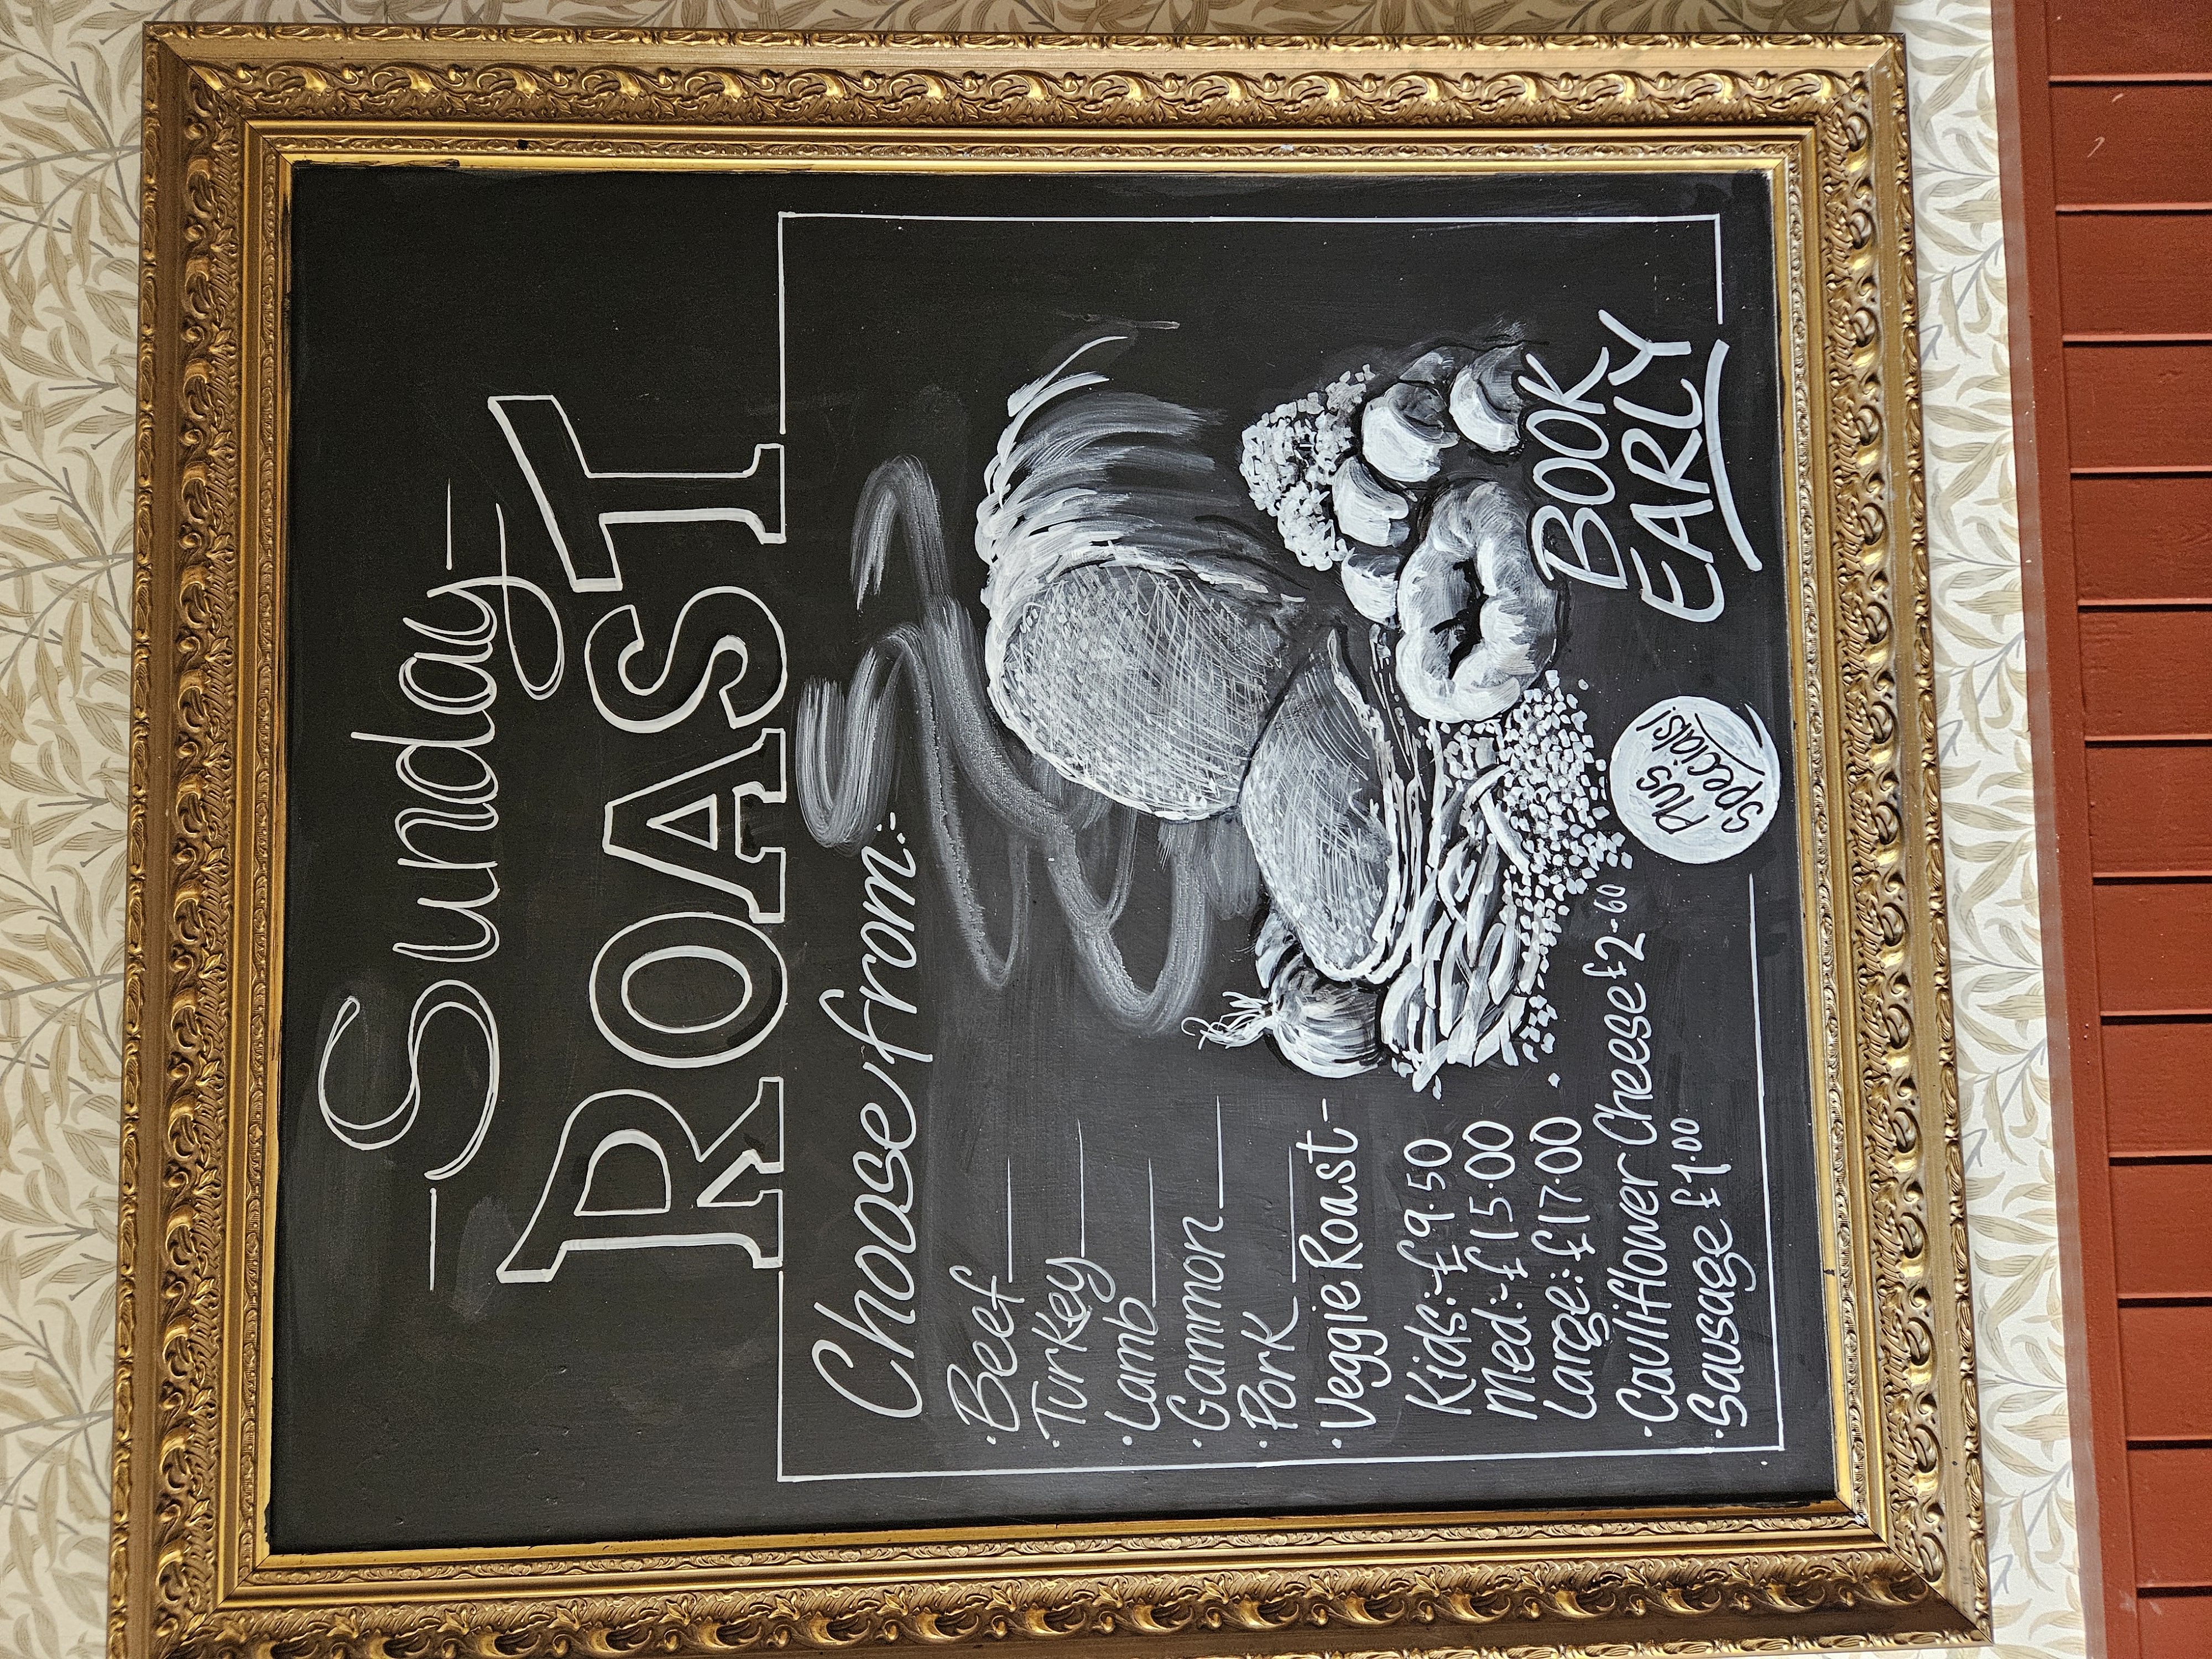 Sunday
ROAST
Choose from:-
· Beef
· Turkey
· Lamb
· Gammon
· Pork
· Veggie Roast-
Kids:-£9.50
Med:-£15.00
Large:£17.00
· Cauliflower Cheese £2.60
· Sausage £1.00
BOOK
EARLY
Plus
Specials!